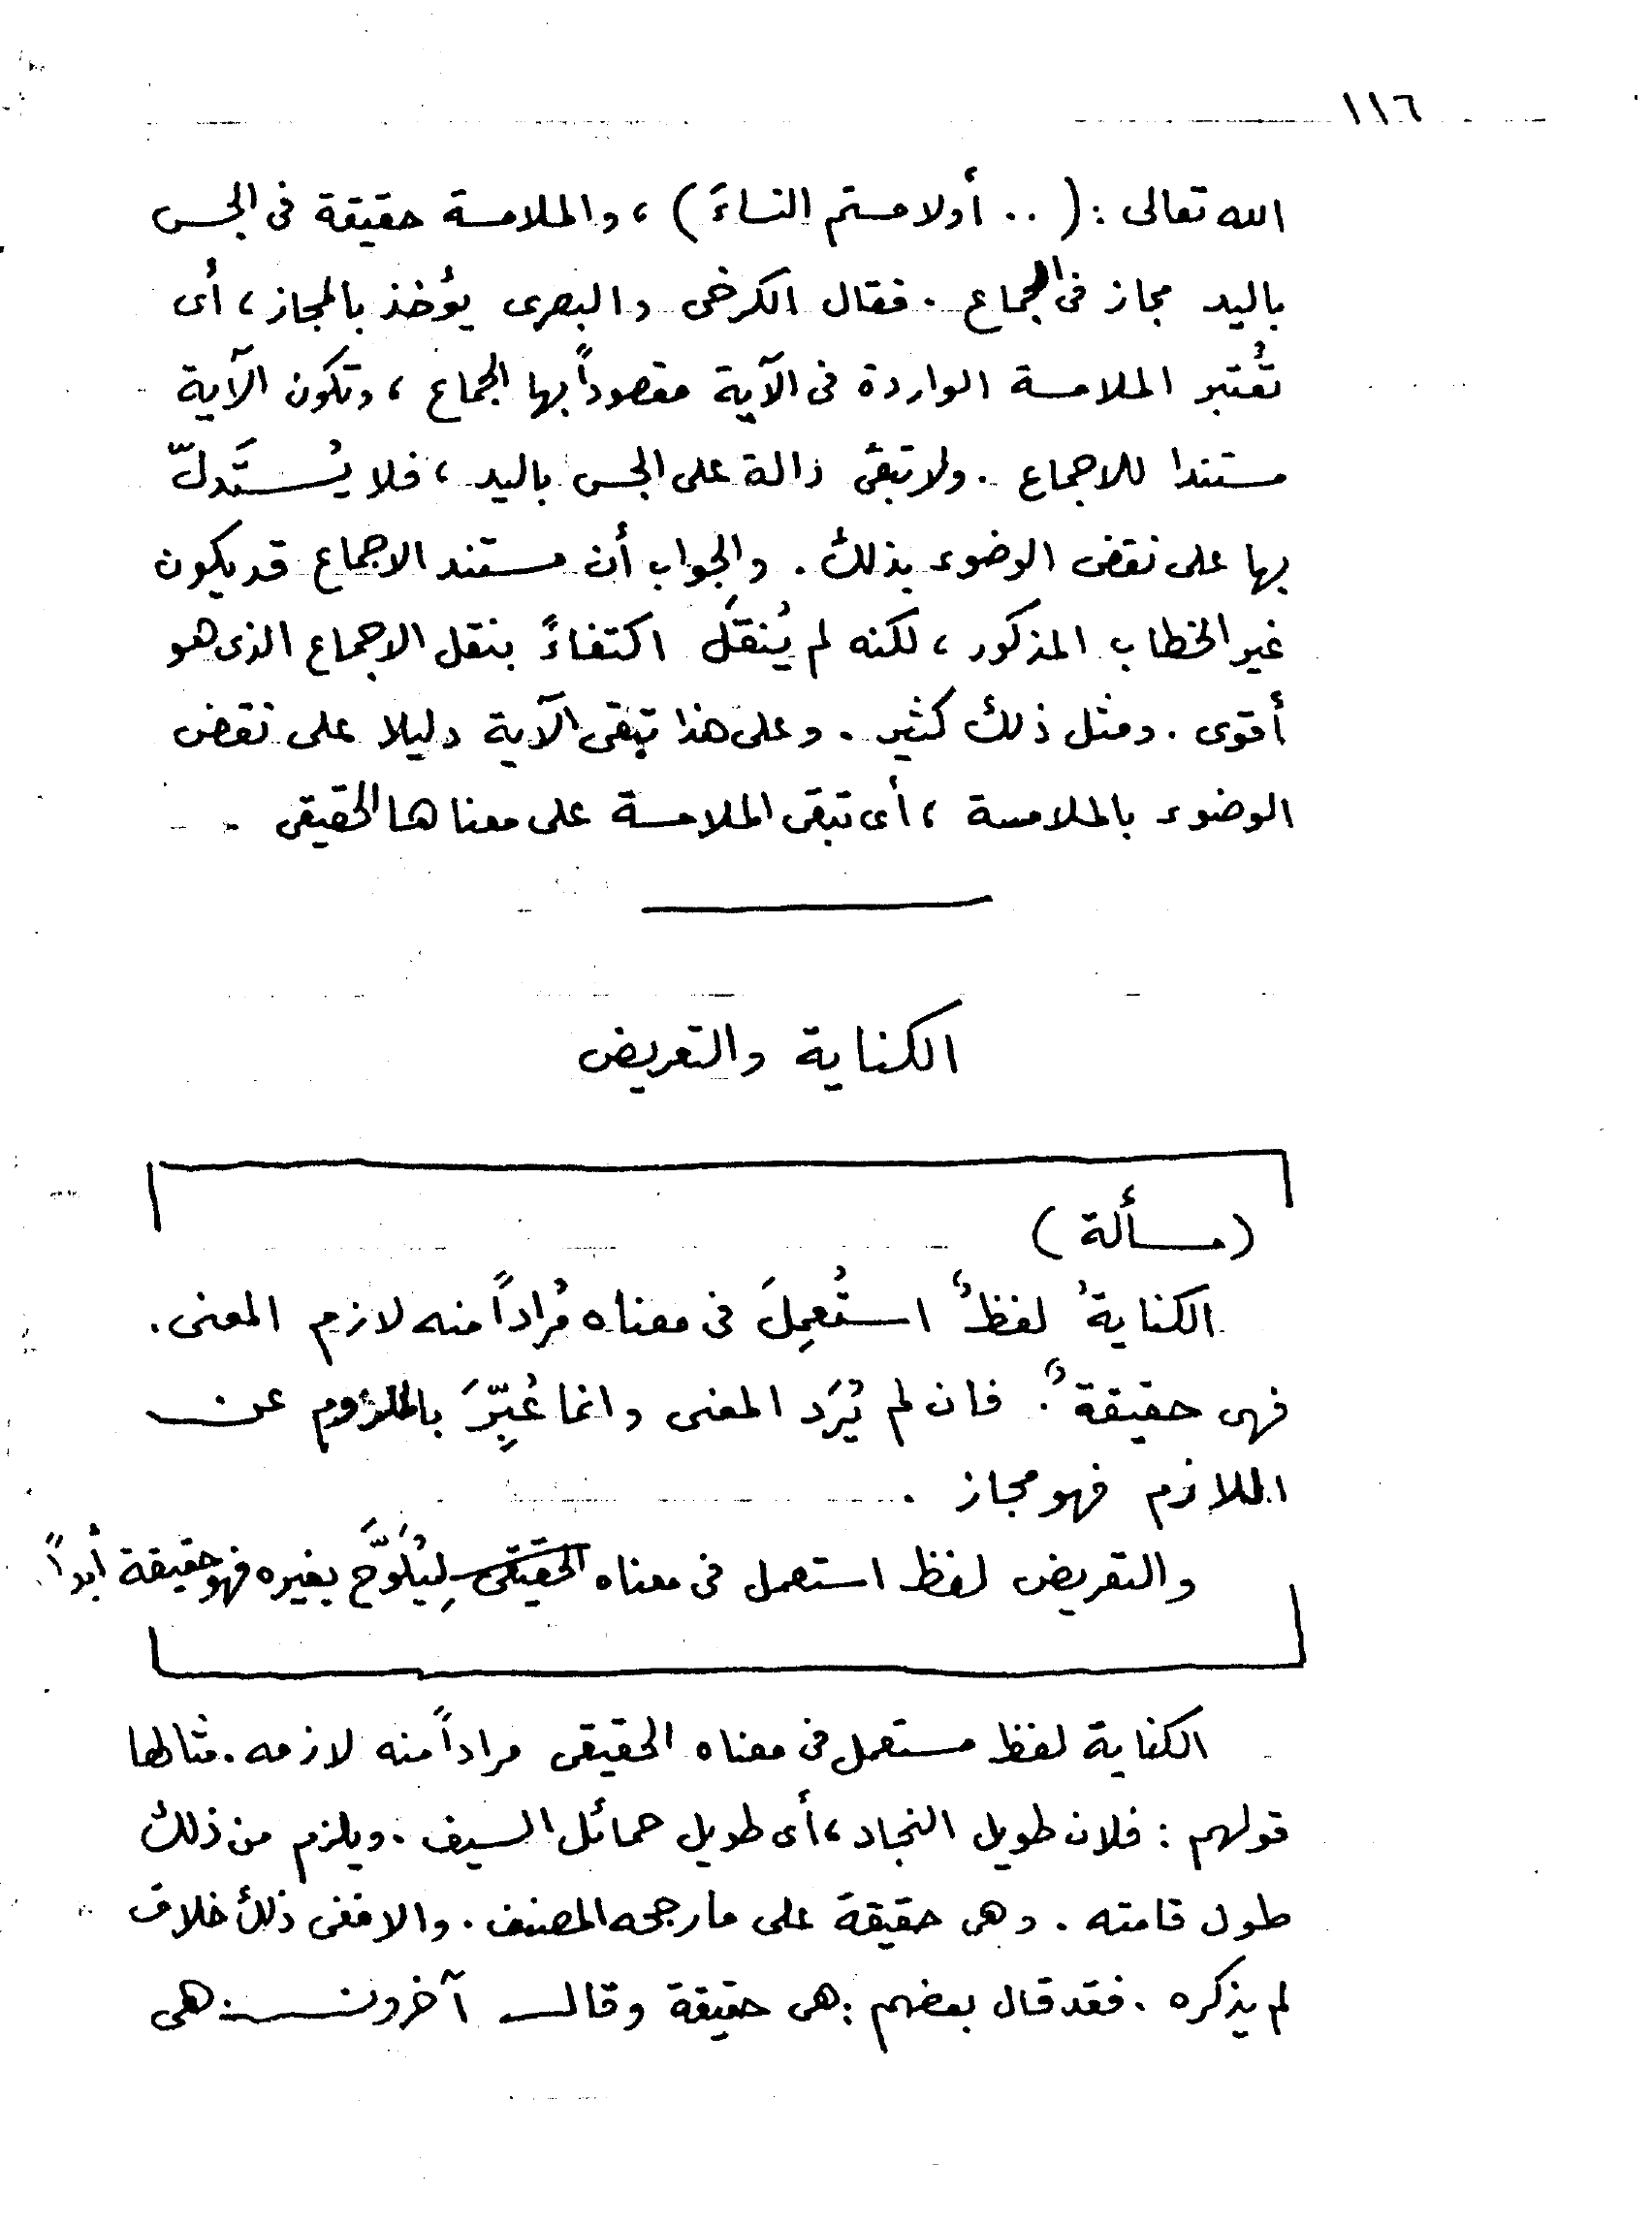 ١١٦
الله تعالى : ( .. أولا مستم النساءَ ) ، والملامسة حقيقة فى الجس
باليد مجاز فى الجماع . فقال الكرخى والبصرى يؤخذ بالمجاز ، أى
تُعتبر الملامسة الواردة فى الآية مقصوداً بها الجماع ، وتكون الآية
مستندا للاجماع . ولا تبقى دالة على الجس باليد ، فلا يُستَدلّ
بها على نقض الوضوء بذلك . والجواب أن مستند الاجماع قد يكون
غير الخطاب المذكور ، لكنه لم يُنقَل اكتفاءً بنقل الاجماع الذى هو
أقوى . ومثل ذلك كثير . وعلى هذا تبقى الآية دليلا على نقض
الوضوء بالملامسة ، أى تبقى الملامسة على معناها الحقيقى .
الكناية والتعريض
( مسألة )
الكنايةُ لفظٌ استُعمِلَ فى معناه مُراداً منه لازم المعنى .
فهى حقيقةٌ . فان لم يُرَد المعنى وانما عُبِّرَ بالملزوم عن
اللازم فهو مجاز .
والتعريض لفظ استعمل فى معناه الحقيقى لِيُلَوَّحَ بغيره فهو حقيقة أبداً .
الكناية لفظ مستعمل فى معناه الحقيقى مراداً منه لازمه . مثالها
قولهم : فلان طويل النجاد ، أى طويل حمائل السيف . ويلزم من ذلك
طول قامته . وهى حقيقة على ما رجحه المصنف . والا ففى ذلك خلاف
لم يذكره . فقد قال بعضهم : هى حقيقة وقال آخرون : هى